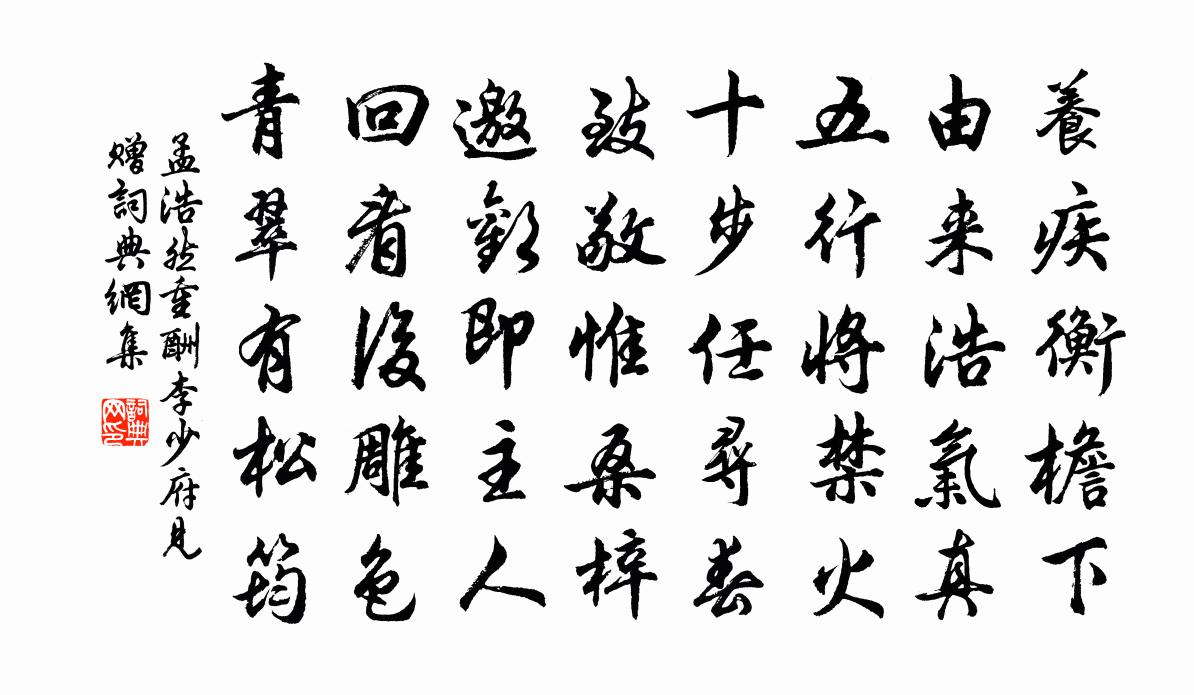 養疾衡檐下
由来浩氣真
五行將禁火
十步任尋春
致敬惟桑梓
邀歡即主人
回看後雕色
青翠有松筠
孟浩然重酬李少府見
贈詞典網集
詞典
网印